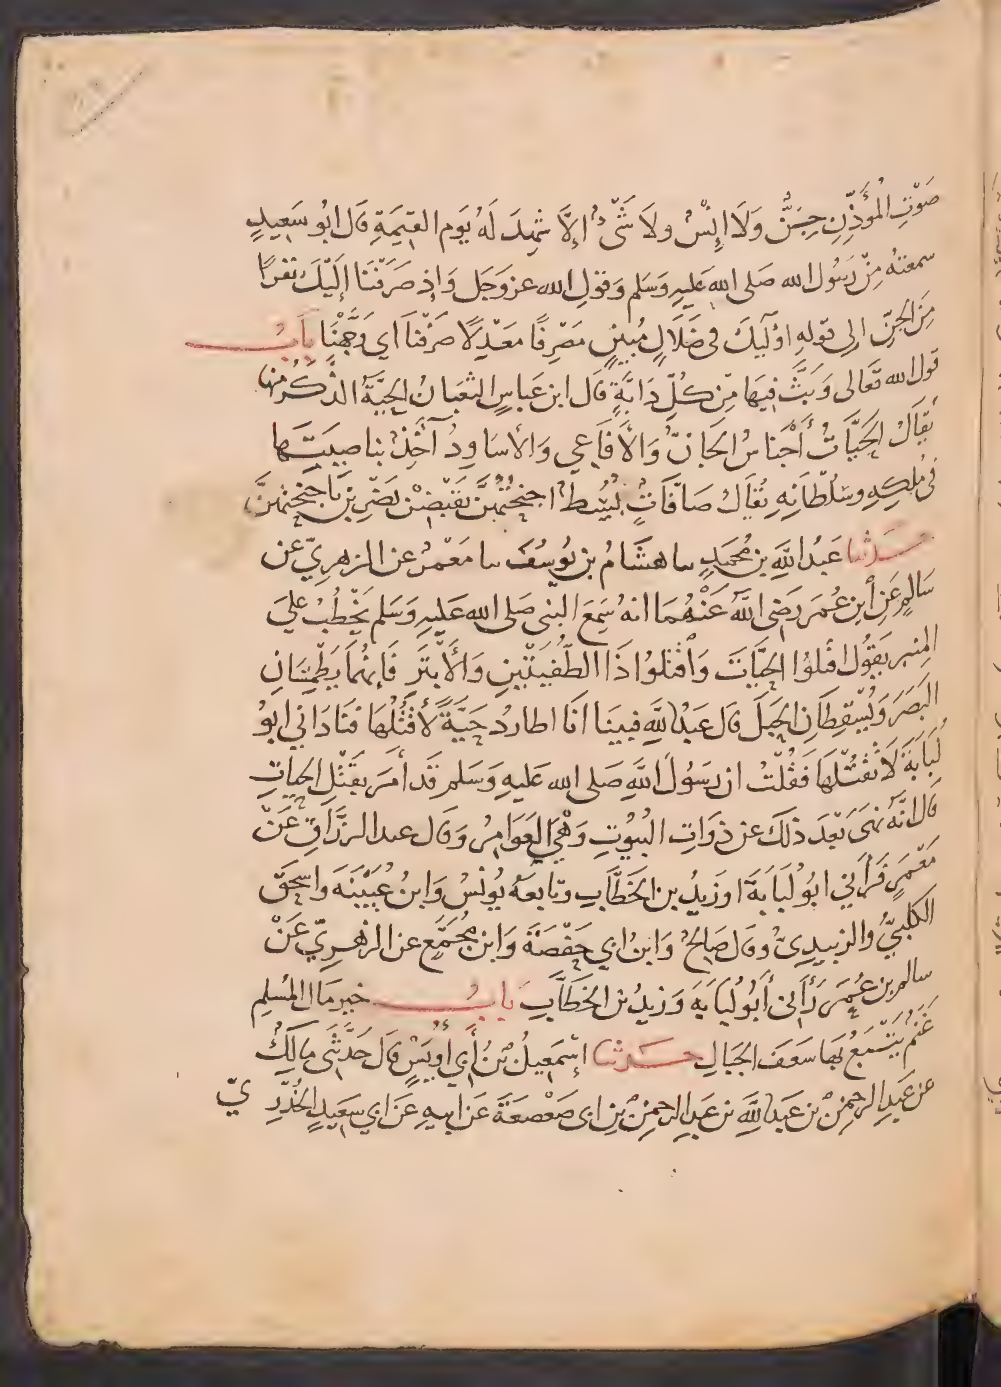 صَوْتِ الْمُؤَذِّنِ جِنٌّ وَلَا إِنْسٌ ولَا شَىْءٌ إِلَّا شَهِدَ لَهُ يَوم القِيَمَةِ قَال ابُو سَعِيدٍ
سمعته مِنْ رَسُول الله صَلى الله عَليهِ وَسَلم وَقولِ الله عز وَجَل وَإِذ صَرَفْنَا إِلَيْكَ نَفَرًا
مِنَ الجِنِّ الى قوله اوْلَيكَ فى ضَلَالٍ مُبِينٍ مَصْرِفًا مَعْدِلًا صَرَفْنَا اي وَجَّهْنَا بَابُ
قول الله تَعَالى وَبَثَّ فِيهَا مِنْ كُلِّ دَابَّةٍ قَال ابن عَباسٍ الثعبَانُ الحَيَّةُ الذَّكَرُ مِنهَا
يُقَالُ الحَيَّاتُ أَجْنَاسٌ الجَانُّ وَالأَفَاعِي وَالأسَاوِدُ آخِذٌ بنَاصِيَتِهَا
فى مُلكِهِ وسُلْطَانِهِ يُقَالُ صَافَّاتٍ بُسُطٌ اجنِحَتَهُنَّ يَقْبِضْنَ يَضْرِبنَ بِاَجنِحَتِهِنَّ
حدثنا عَبدُ اللَّهِ بن مُحَمدٍ سا هشَامُ بن يُوسُفَ سا مَعْمَرٌ عن الزهريّ عن
سَالِمٍ عَنِ ابنِ عُمَرَ رَضِى اللَّهُ عَنْهُمَا انهُ سَمِعَ النبى صَلى الله عَليهِ وَسَلم يَخْطُبُ عَلَى
المنبر يَقُولُ اقتُلوُا الحيَّاتَ وَاقتُلوُا ذَا الطُّفْيَتَيْنِ وَالأَبْتَرَ فَإِنهُمَا يَطْمِسَانِ
البَصَرَ وَيُسْقِطَانِ الحَبَلَ قَال عَبدُ اللَّهِ فبَينَا انَا اطارد حَيَّةً لأَقْتُلَهَا فنَادَاني ابوُ
لُبَابَةَ لَا تَقتُلْهَا فَقُلْتُ ان رَسُولَ اللَّهِ صَلى الله عَليهِ وَسَلم قَد أَمَرَ بِقَتْلِ الحيات
قَال انَّهُ نهَى بَعْدَ ذلكَ عن ذَوَاتِ البُيوُتِ وَهْيَ العَوَامِرُ وَقَال عبد الرزَّاقِ عَنْ
مَعْمَرٍ فَرَآنِي ابوُ لُبَابَةَ او زَيدُ بن الخَطَّابِ وتابعَهُ يُونُسُ وَابنُ عُيَيْنَةَ واسحَقُ
الكَلبيُّ والزبيدىُّ وقال صَالِحٌ وَابنُ ابي حَفْصَةَ وَابن مُجَمِّعٍ عن الزهريّ عَنْ
سالم بن عُمَر رَآنى أَبُو لُبَابَةَ وَزيدُ بن الخَطَّابِ بَابُ خير مَال المُسلِم
غَنَمٌ يَتْبَعُ بهَا سَعَفَ الجبَالِ حدثنا إسْمَعِيلُ بْنُ أَبي أُوَيْسٍ قَال حَدَّثَنى مَالِكٌ
عن عَبدِ الرحمن بن عَبدِ اللَّهِ بن عَبدِ الرحمن بن ابى صَعْصَعَةَ عَن ابيهِ عَن ابي سَعيدٍ الخُدْرِيّ